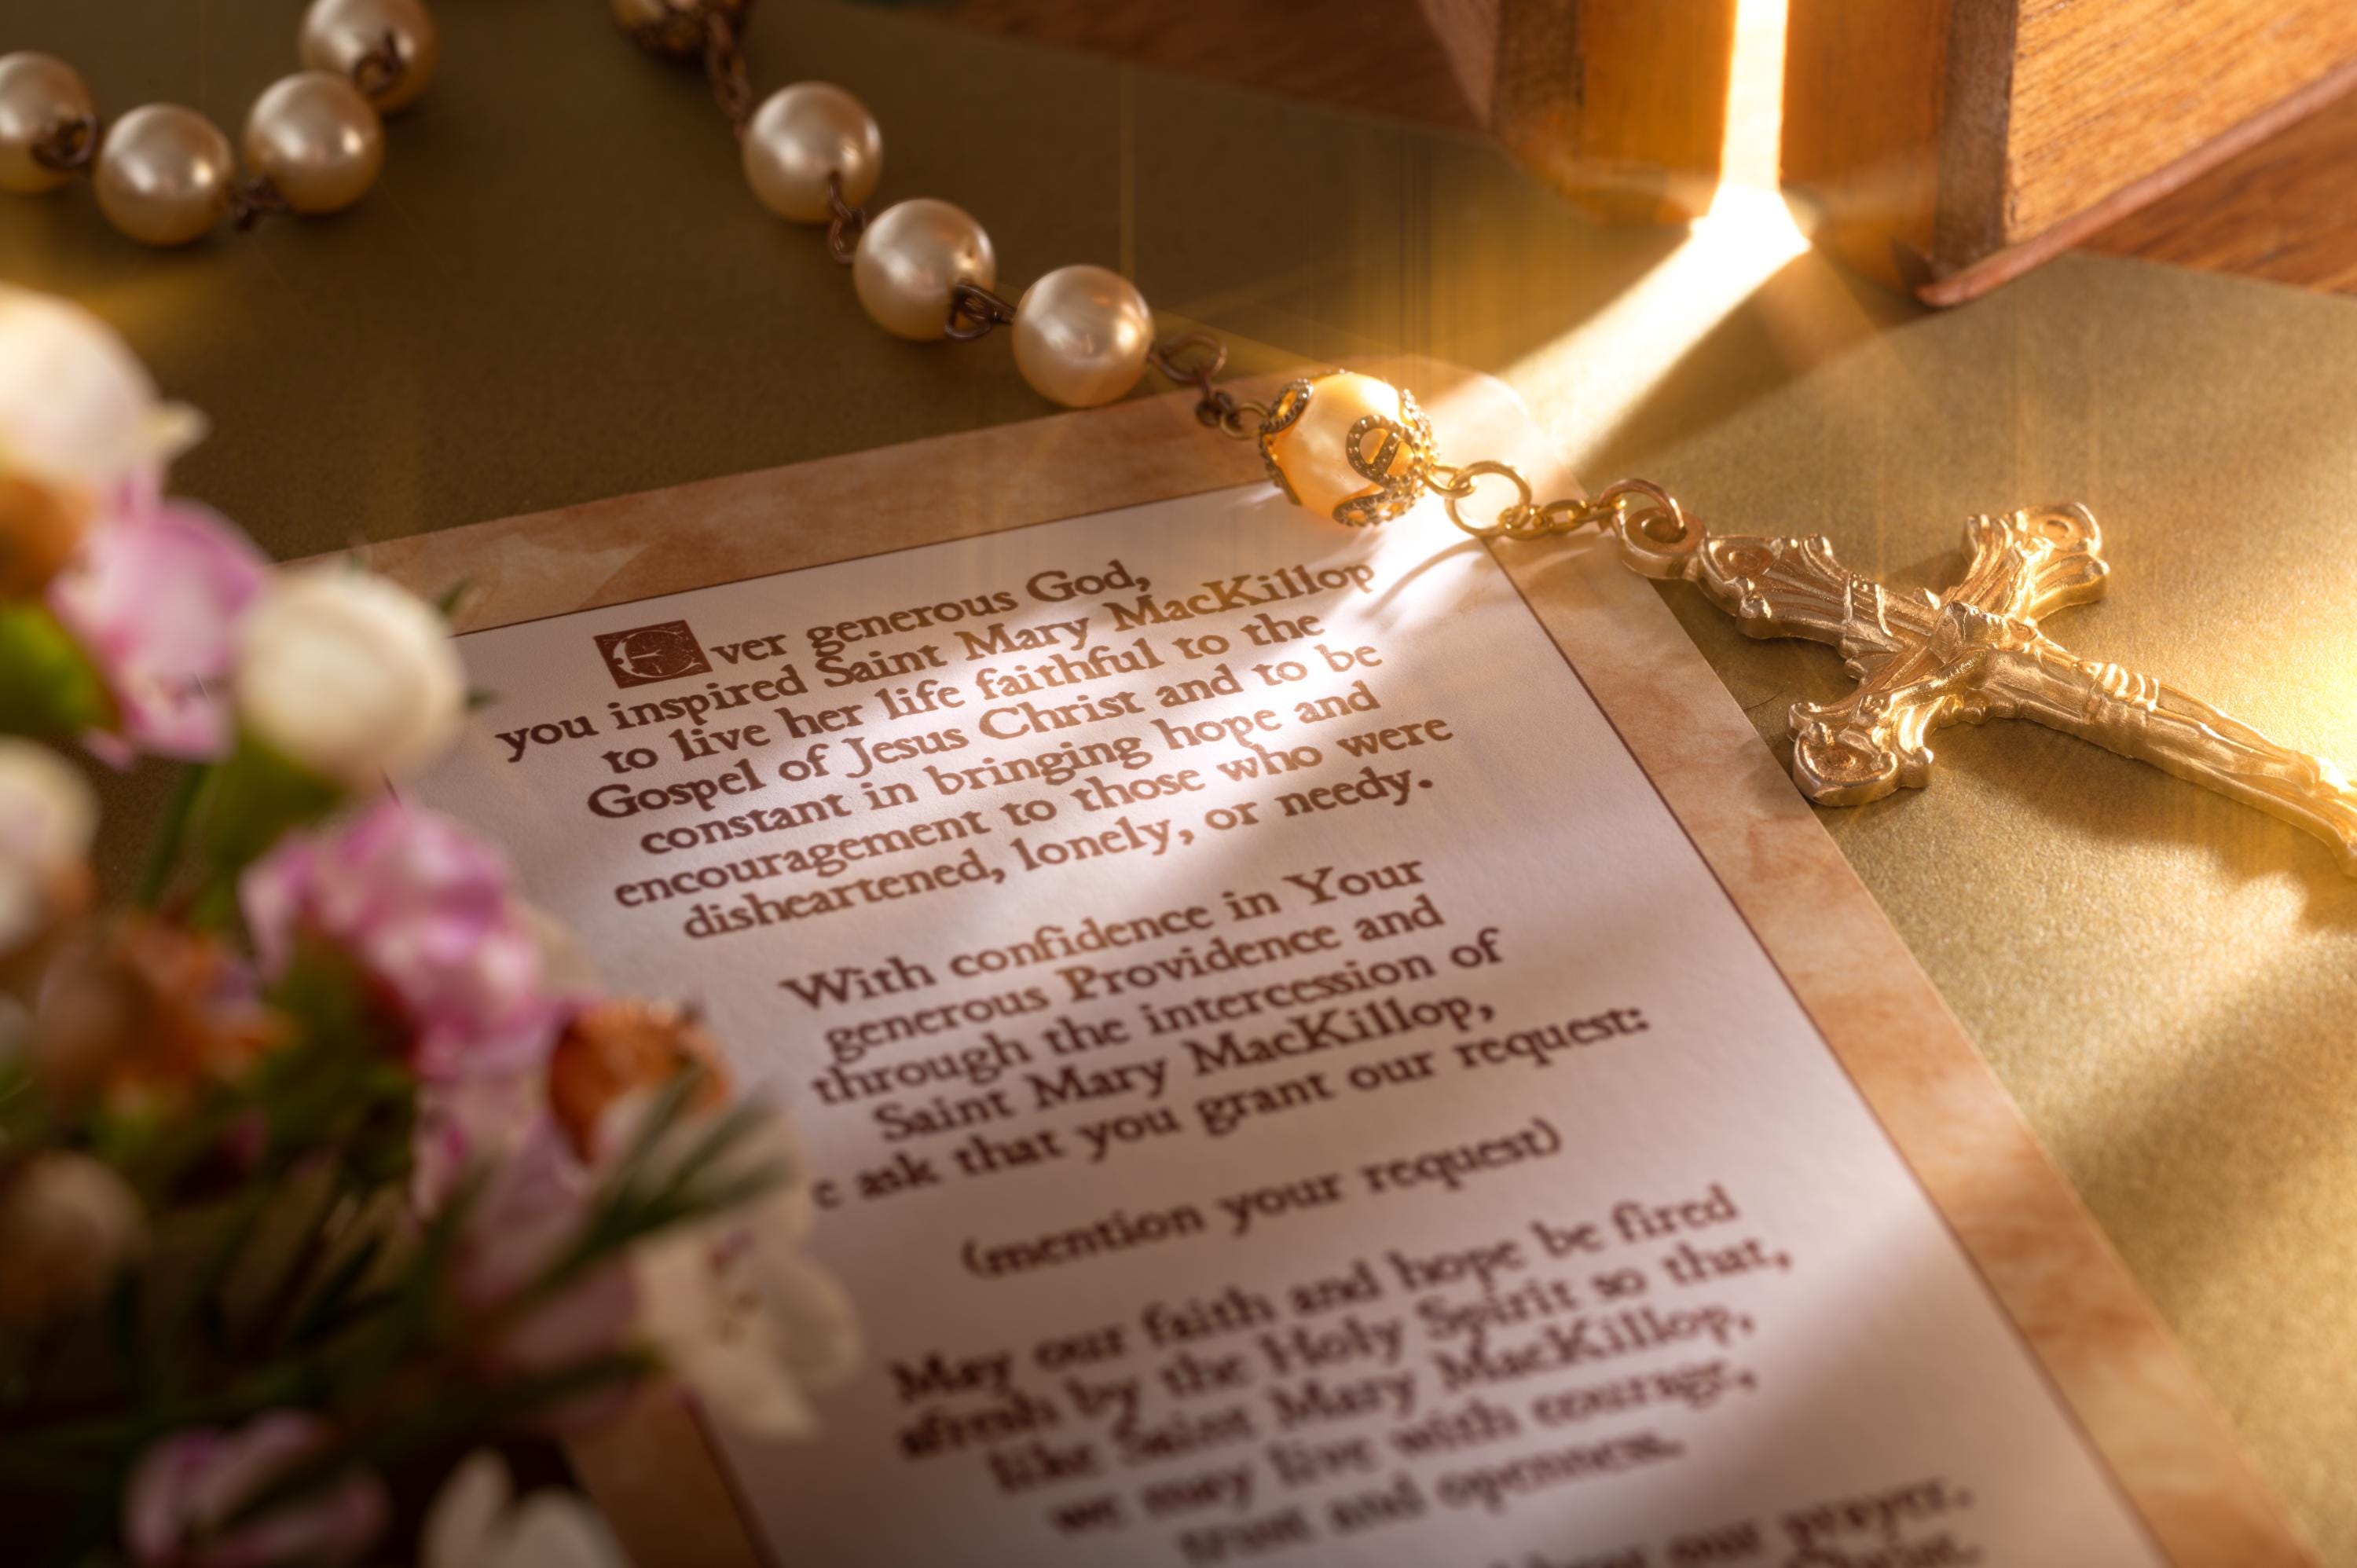 Ever generous God,
you inspired Saint Mary MacKillop
to live her life faithful to the
Gospel of Jesus Christ and to be
constant in bringing hope and
encouragement to those who were
disheartened, lonely, or needy.
With confidence in Your
generous Providence and
through the intercession of
Saint Mary MacKillop,
e ask that you grant our request:
(mention your request)
May our faith and hope be fired
afresh by the Holy Spirit so that,
like Saint Mary MacKillop,
we may live with courage,
trust and openness.
our prayer.
Christ.